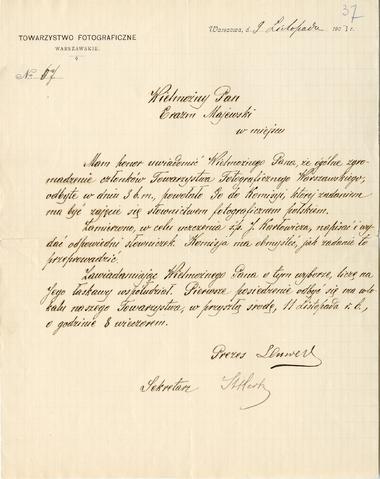 37
TOWARZYSTWO FOTOGRAFICZNE
WARSZAWSKIE.
Warszawa, d. 9 Listopada 1903 r.
No. 67
Wielmożny Pan
Erazm Majewski
w miejscu
Mam honor uwiadomić Wielmożnego Pana, że ogólne zgro-
madzenie członków Towarzystwa Fotograficznego Warszawskiego,
odbyte w dniu 3 b.m., powołało Go do Komisyi, której zadaniem
ma być zajęcie się słownictwem fotograficznem polskiem.
Zamierzono, w celu uczczenia ś.p. J. Karłowicza, napisać i wy-
dać odpowiedni słowniczek. Komisja ma obmyśleć, jak zadanie to
przeprowadzić.
Zawiadamiając Wielmożnego Pana o tym wyborze, liczę na
Jego łaskawy współudział. Pierwsze posiedzenie odbyć się ma w lo-
kalu naszego Towarzystwa, w przyszłą środę, 11 Listopada r.b.,
o godzinie 8 wieczorem.
Prezes
Sekretarz